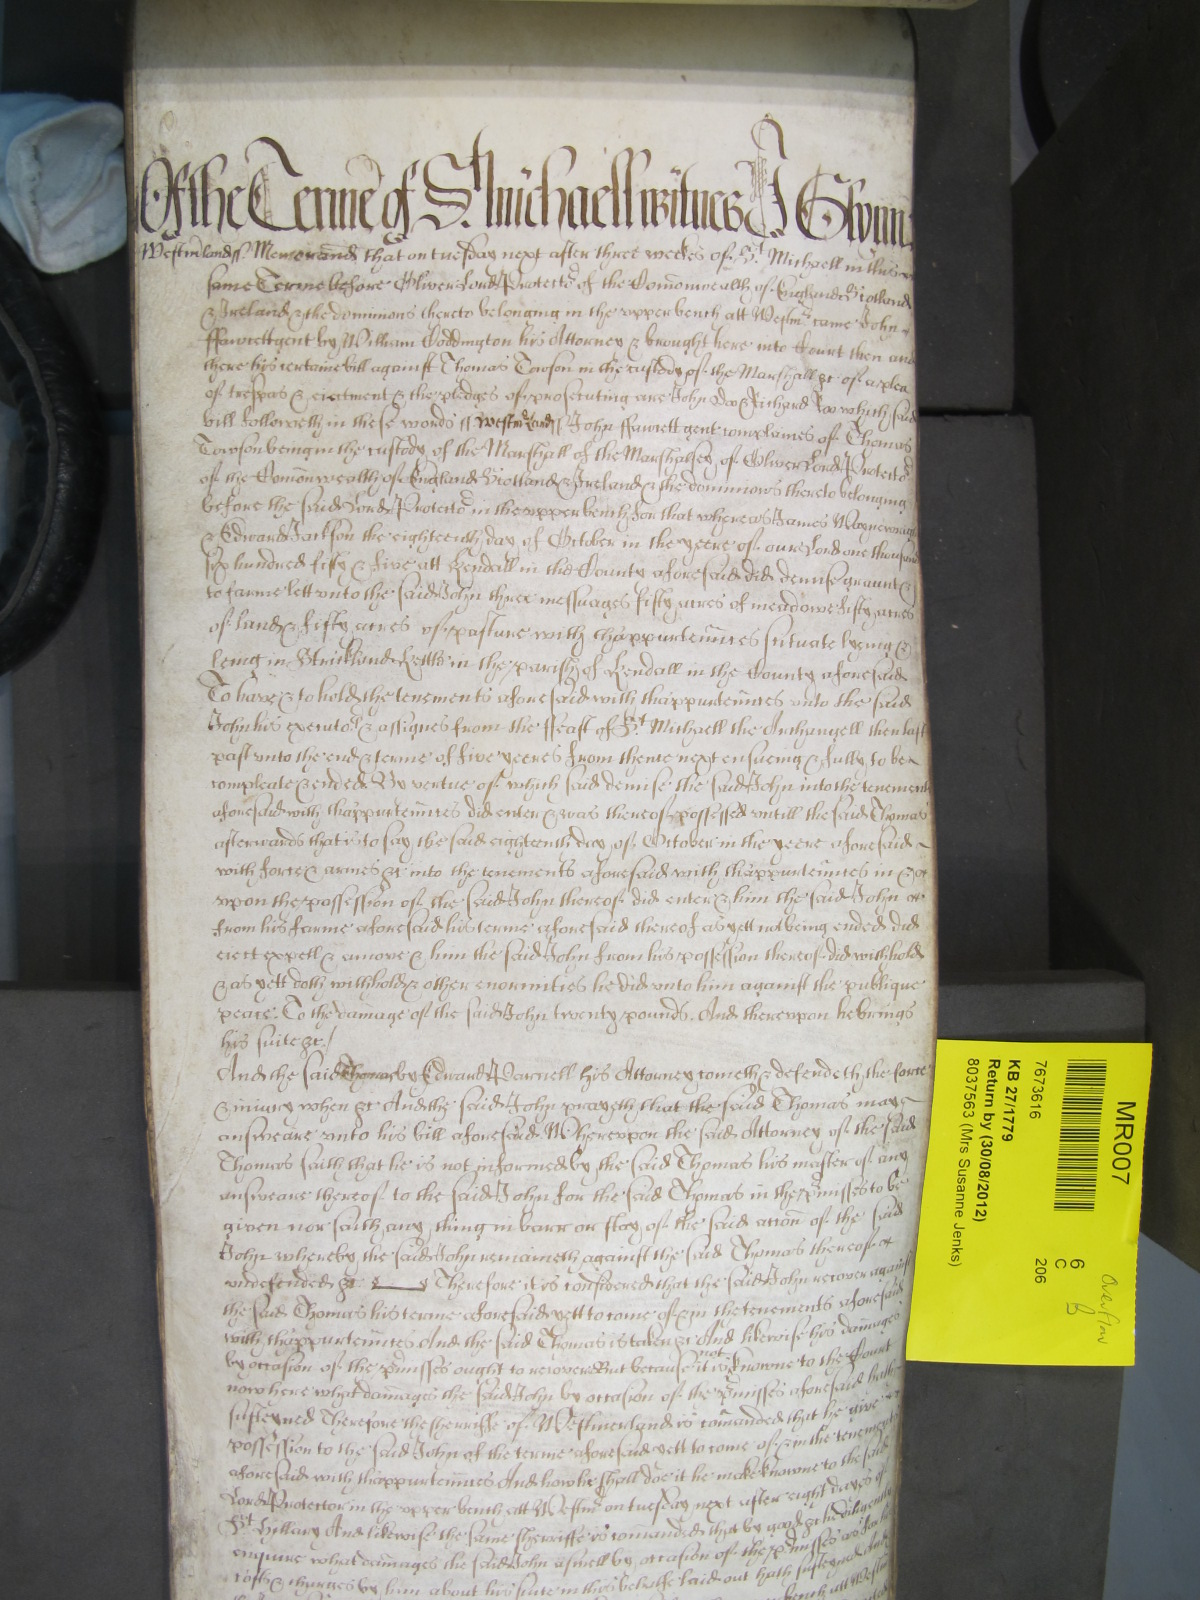 Of the Terme of St Michaell witnes J Glynn
Westmland ss Memorand that on tuesday next after three weekes of St Michaell in this
same Terme before Oliver Lord Protector of the Comonwealth of England Scotland
& Ireland & the dominions thereto belonging in the upper bench att Westmr came John
ffawcett gent by William Coddington his Attorney & brought here into Court then and
there his certaine bill against Thomas Towson in the custody of the Marshall &c of a plea
of trespas & eiectment & the pledges of prosecuting are John Doe & Richard Roo which said
bill followeth in these words ss Westmrland ss John ffawcett gent complaines of Thomas
Towson being in the custody of the Marshall of the Marshalsey of Oliver Lord Protector
of the Comonwealth of England Scotland & Ireland & the dominions thereto belonging
before the said Lord Protector in the upper bench for that whereas James
& Edward Jackson the eighteenth day of October in the yeere of oure Lord one thousand
six hundred fifty & five att Kendall in the County aforesaid did demise graunt &
to farme lett unto the said John three messuages fifty acres of meadowe fifty acres
of land & fifty acres of pasture with thappurtennces scituate lyeing &
being in Strickland Kettle in the parish of Kendall in the County aforesaid
To have & to hold the tenements aforesaid with thappurtennces unto the said
John his executors & assignes from the ffeast of St Michaell the Archangell then last
past unto the end & terme of five yeeres from thence next ensueing & fully to be
compleate & ended By vertue of which said demise the said John into the tenements
aforesaid with thappurtennces did enter & was thereof possessed untill the said Thomas
afterwards that is to say the said eighteenth day of October in the yeere aforesaid
with force & armes &c into the tenements aforesaid with thappurtennces in & of
upon the possession of the said John thereof did enter & him the said John
from his farme aforesaid his terme aforesaid thereof as yett not being ended did
eiect expell & amove & him the said John from his possession thereof did withhold
& as yett doth withhold & other enormities he did unto him against the publique
peace. To the damage of the said John twenty pounds. And thereupon he brings
his suite &c./
And the said Thomas by Edward Parnell his Attorney cometh & defendeth the force
& iniury when &c And the said John prayeth that the said Thomas may
answeare unto his bill aforesaid Whereupon the said Attorney of the said
Thomas saith that he is not informed by the said Thomas his master of any
answeare thereof to the said John for the said Thomas in the pmisses to be
given nor saith any thing in barr or stay of the said accon of the said
John whereby the said John remaineth against the said Thomas thereof
undefended &c Therefore it is considered that the said John recover against
the said Thomas his terme aforesaid yett to come of & in the tenements aforesaid
with thappurtennces And the said Thomas is taken &c And likewise his damages
by occasion of the pmisses ought to recover But because it is not knowne to the Court
now here what damages the said John by occasion of the pmisses aforesaid hath
susteyned Therefore the sherriffe of Westmerland is comanded that he give
possession to the said John of the terme aforesaid yett to come of & in the tenements
aforesaid with thappurtennces And how he shall doe it he make knowne to the said
Lord Protector in the upper bench att Westmr on tuesday next after eight dayes of
St Hillary And likewise the same sherriffe is comanded that by good &c he diligently
enquire what damages the said John aswell by occasion of the pmisses as for his
costs & charges by him about his suite in this behalfe laid out hath susteyned And
bench att Westmr
MR007
7673616
KB 27/1779
Return by (30/08/2012)
8037563 (Mrs Susanne Jenks)
6
C
206
Overflow
B